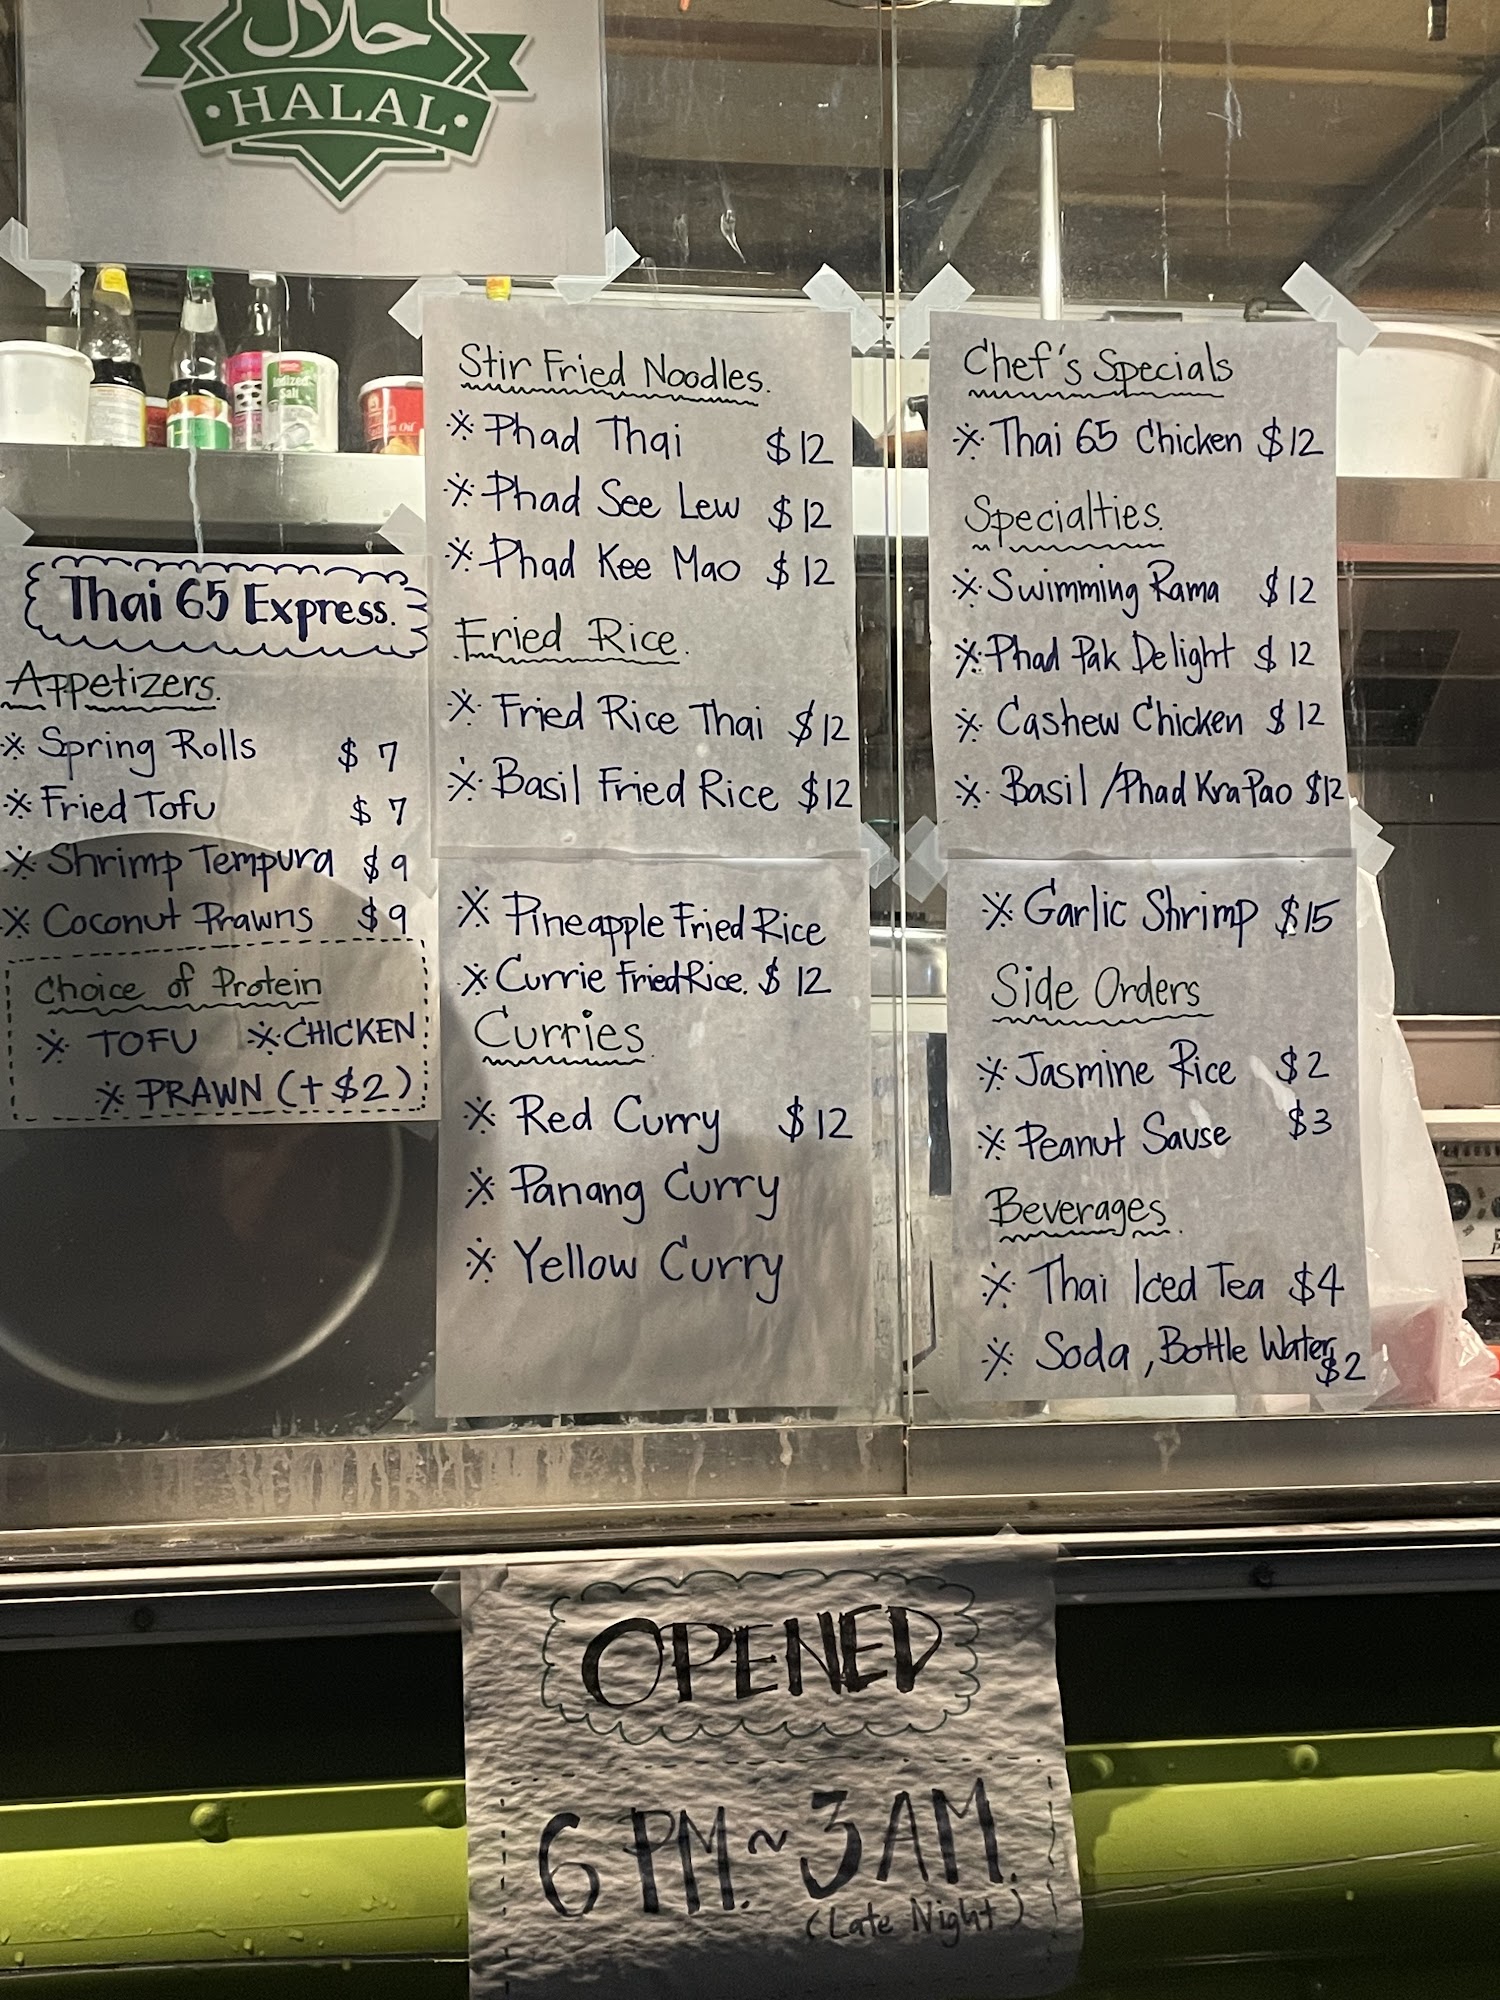 حلال
HALAL
Iodized
Salt
Thai 65 Express.
Appetizers.
Spring Rolls $7
Fried Tofu $7
Shrimp Tempura $9
Coconut Prawns $9
Choice of Protein
TOFU CHICKEN
PRAWN (+$2)
Stir Fried Noodles.
Phad Thai $12
Phad See Lew $12
Phad Kee Mao $12
Fried Rice.
Fried Rice Thai $12
Basil Fried Rice $12
Pineapple Fried Rice
Currie Fried Rice. $12
Curries.
Red Curry $12
Panang Curry
Yellow Curry
Chef's Specials
Thai 65 Chicken $12
Specialties.
Swimming Rama $12
Phad Pak Delight $12
Cashew Chicken $12
Basil/Phad Kra Pao $12
Garlic Shrimp $15
Side Orders
Jasmine Rice $2
Peanut Sause $3
Beverages.
Thai Iced Tea $4
Soda, Bottle Water $2
OPENED
6 PM. ~ 3 AM.
(Late Night)